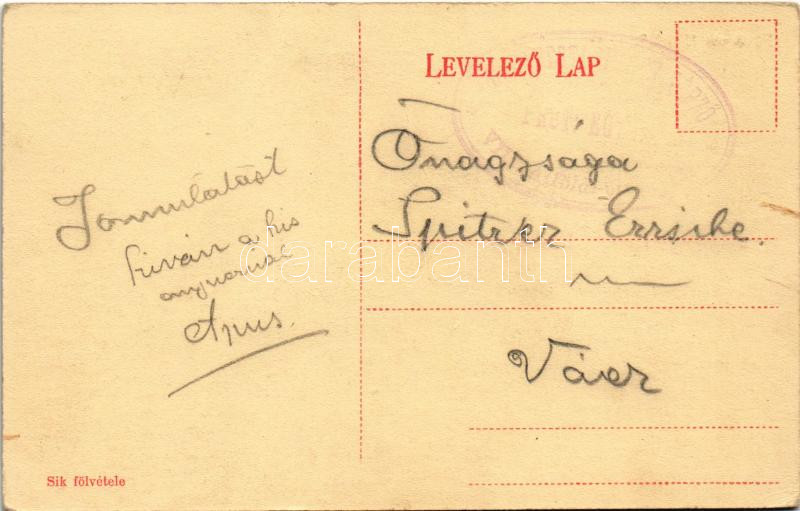 LEVELEZŐ LAP
Őnagysága
Spitzer Erzsike.
Vácz
Jómulatást
kíván a kis
anyuval
Apus.
Sik fölvétele
darabanth